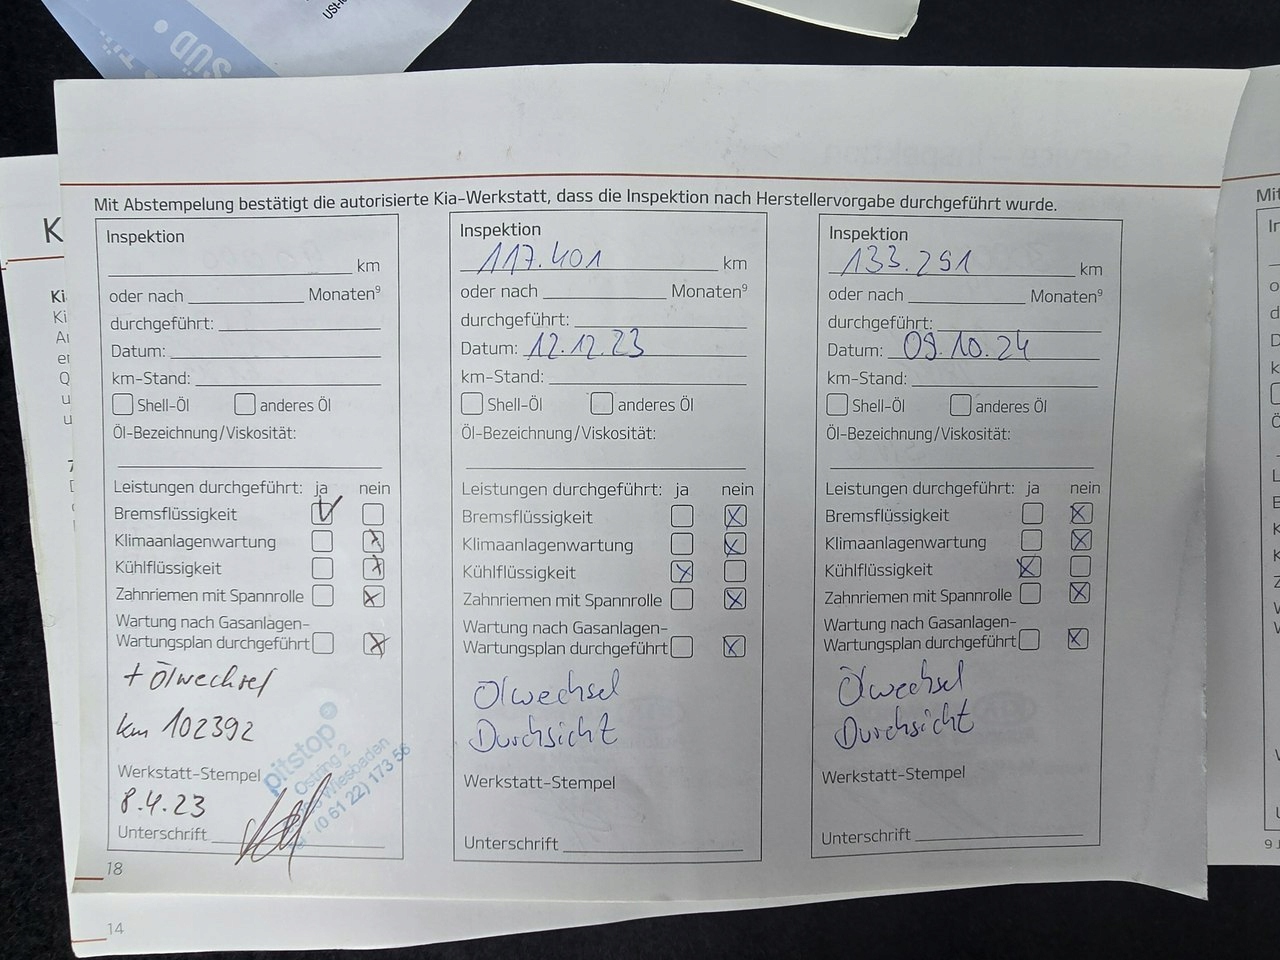 SÜD
Mit Abstempelung bestätigt die autorisierte Kia-Werkstatt, dass die Inspektion nach Herstellervorgabe durchgeführt wurde.
Inspektion
km
oder nach Monaten⁹
durchgeführt:
Datum:
km-Stand:
Shell-Öl anderes Öl
Öl-Bezeichnung/Viskosität:
Leistungen durchgeführt: ja nein
Bremsflüssigkeit
Klimaanlagenwartung
Kühlflüssigkeit
Zahnriemen mit Spannrolle
Wartung nach Gasanlagen-
Wartungsplan durchgeführt
+ Ölwechsel
km 102392
pitstop
Ostring 2
Wiesbaden
(0 61 22) 173 56
Werkstatt-Stempel
8.4.23
Unterschrift
18
Inspektion
117.401 km
oder nach Monaten⁹
durchgeführt:
Datum: 12.12.23
km-Stand:
Shell-Öl anderes Öl
Öl-Bezeichnung/Viskosität:
Leistungen durchgeführt: ja nein
Bremsflüssigkeit
Klimaanlagenwartung
Kühlflüssigkeit
Zahnriemen mit Spannrolle
Wartung nach Gasanlagen-
Wartungsplan durchgeführt
Ölwechsel
Durchsicht
Werkstatt-Stempel
Unterschrift
Inspektion
133.291 km
oder nach Monaten⁹
durchgeführt:
Datum: 09.10.24
km-Stand:
Shell-Öl anderes Öl
Öl-Bezeichnung/Viskosität:
Leistungen durchgeführt: ja nein
Bremsflüssigkeit
Klimaanlagenwartung
Kühlflüssigkeit
Zahnriemen mit Spannrolle
Wartung nach Gasanlagen-
Wartungsplan durchgeführt
Ölwechsel
Durchsicht
Werkstatt-Stempel
Unterschrift
14